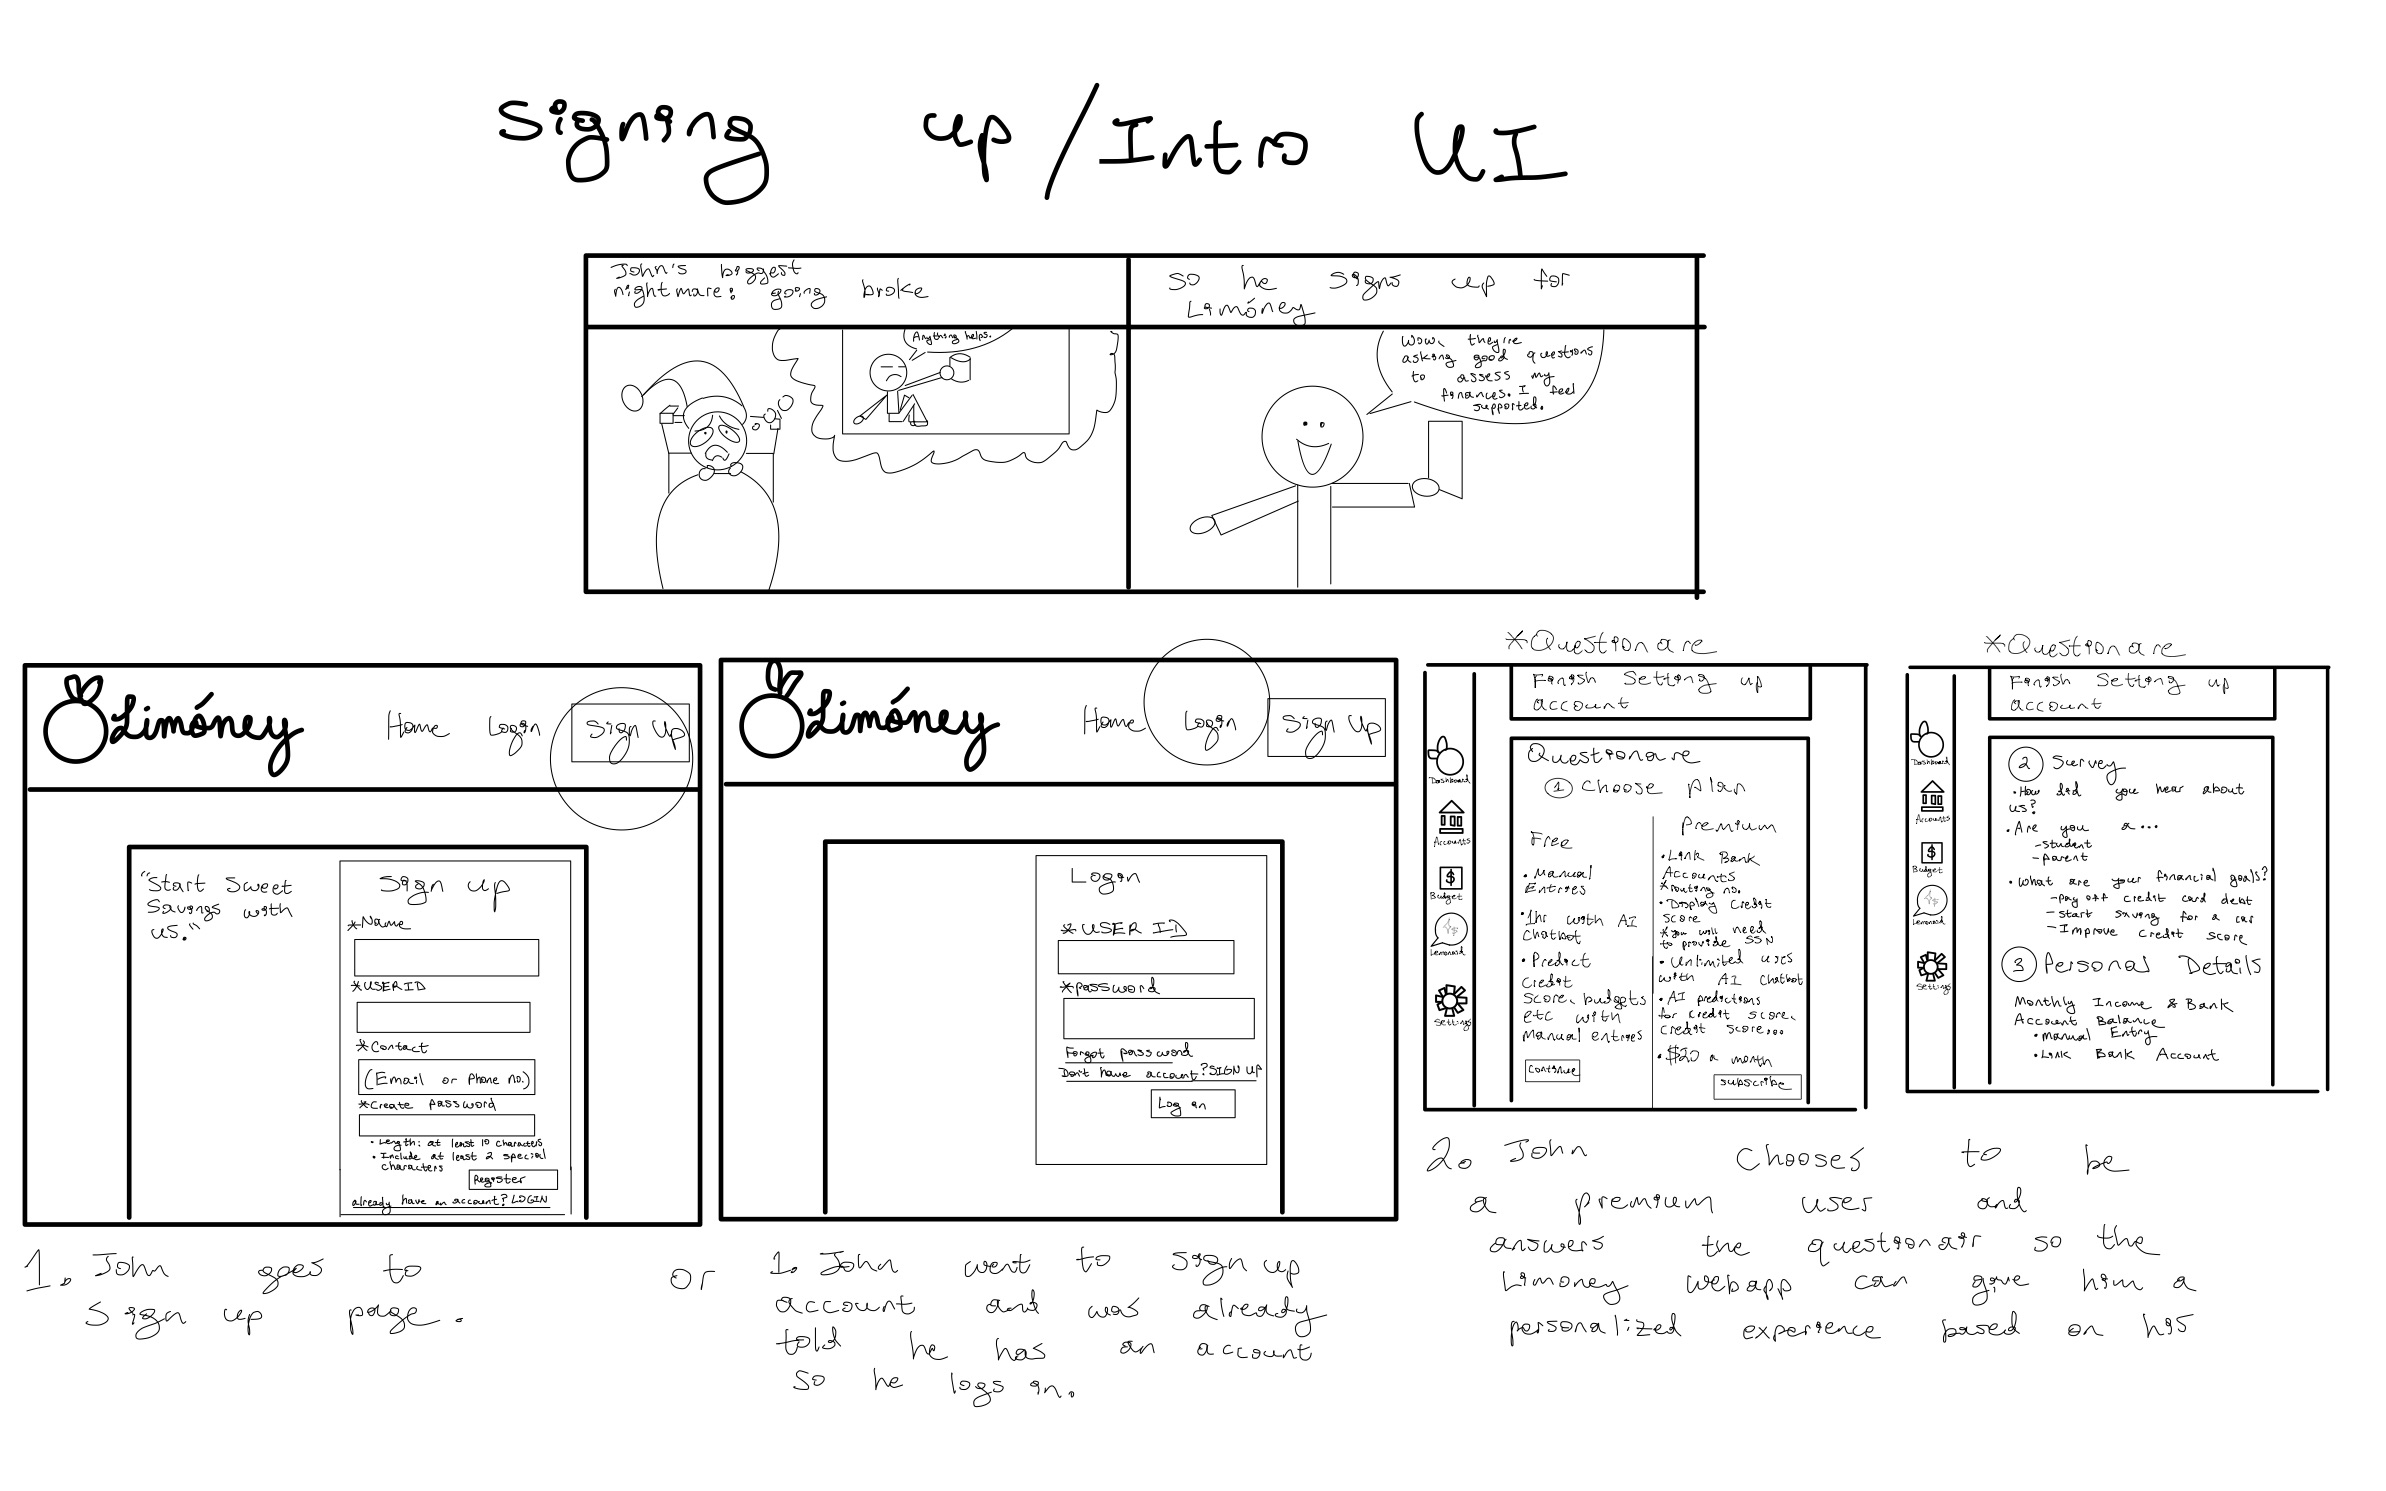 Signing up/Intro UI
John's biggest
nightmare: going broke
Anything helps.
so he signs up for
Limóney
Wow, they're
asking good questions
to assess my
finances. I feel
supported.
Limóney
Home Login Sign Up
"Start Sweet
Savings with
us."
Sign up
*Name
*USER ID
*Contact
(Email or Phone no.)
*Create password
• Length: at least 10 characters
• Include at least 2 special
characters
Register
already have an account? LOGIN
1. John goes to
Sign up page.
or
Limóney
Home Login Sign Up
Login
*USER ID
*password
Forgot password
Don't have account? SIGN UP
Log in
1. John went to sign up
account and was already
told he has an account
so he logs in.
*Questionare
Finish Setting up
account
Dashboard
Accounts
Budget
Lemonaid
Settings
Questionare
1 Choose plan
Free
• Manual
Entries
• 1hr with AI
Chatbot
• Predict
Credit
Score, budgets
etc with
Manual entries
Continue
Premium
• Link Bank
Accounts
*routing no.
• Display Credit
Score
*you will need
to provide SSN
• Unlimited uses
with AI Chatbot
• AI predictions
for credit score,
credit score...
• $20 a month
subscribe
*Questionare
Finish Setting up
account
Dashboard
Accounts
Budget
Lemonaid
Settings
2 Survey
• How did you hear about
us?
• Are you a...
- student
- parent
• What are your financial goals?
- pay off credit card debt
- start saving for a car
- Improve credit score
3 Personal Details
Monthly Income & Bank
Account Balance
• Manual Entry
• Link Bank Account
2. John chooses to be
a premium user and
answers the questionair so the
Limoney webapp can give him a
personalized experience based on his